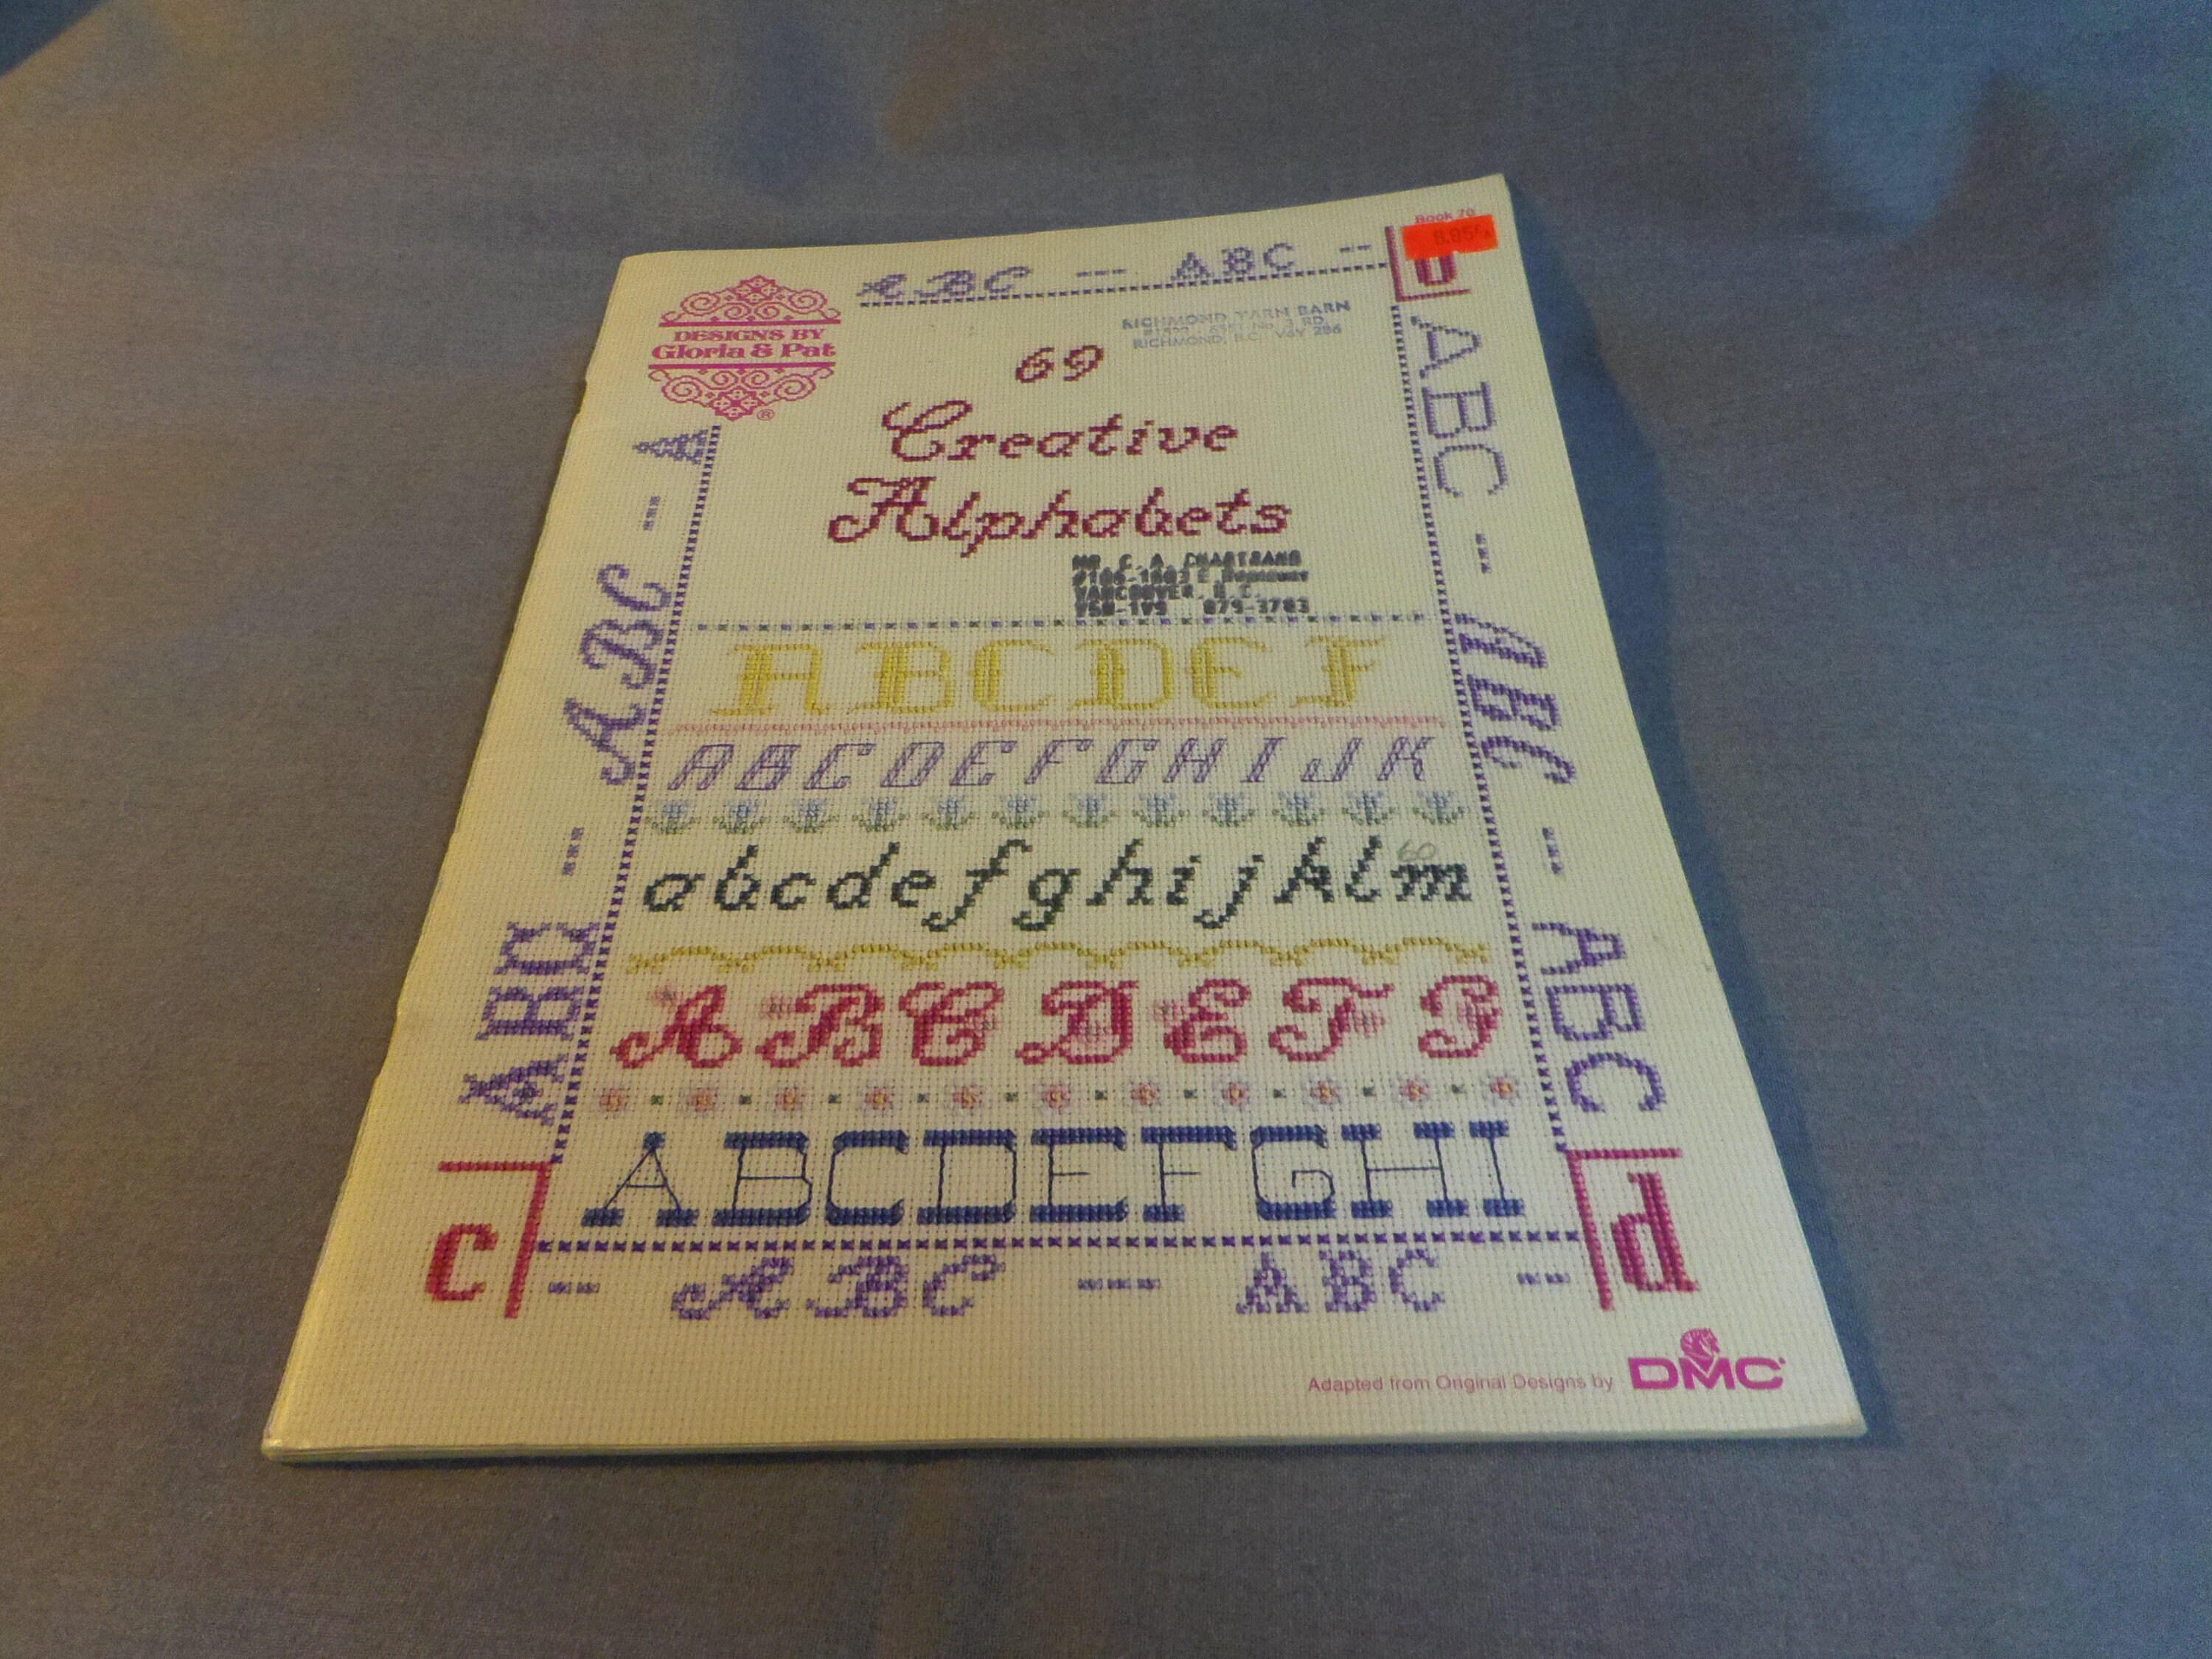 Book 70
8.95
ABC --- ABC --
b
DESIGNS BY
Gloria & Pat
®
RICHMOND YARN BARN
RICHMOND, B.C. V6Y 2B6
69
Creative
Alphabets
MR C. A. CHARTRAND
VANCOUVER, B.C.
ABCDEF
ABCDEFGHIJK
60
abcdefghijklm
ABCDEFG
ABCDEFGHI
ABC --- ABC --- A
ABC --- ABC --- ABC
c
d
-- ABC ---- ABC ---
Adapted from Original Designs by DMC